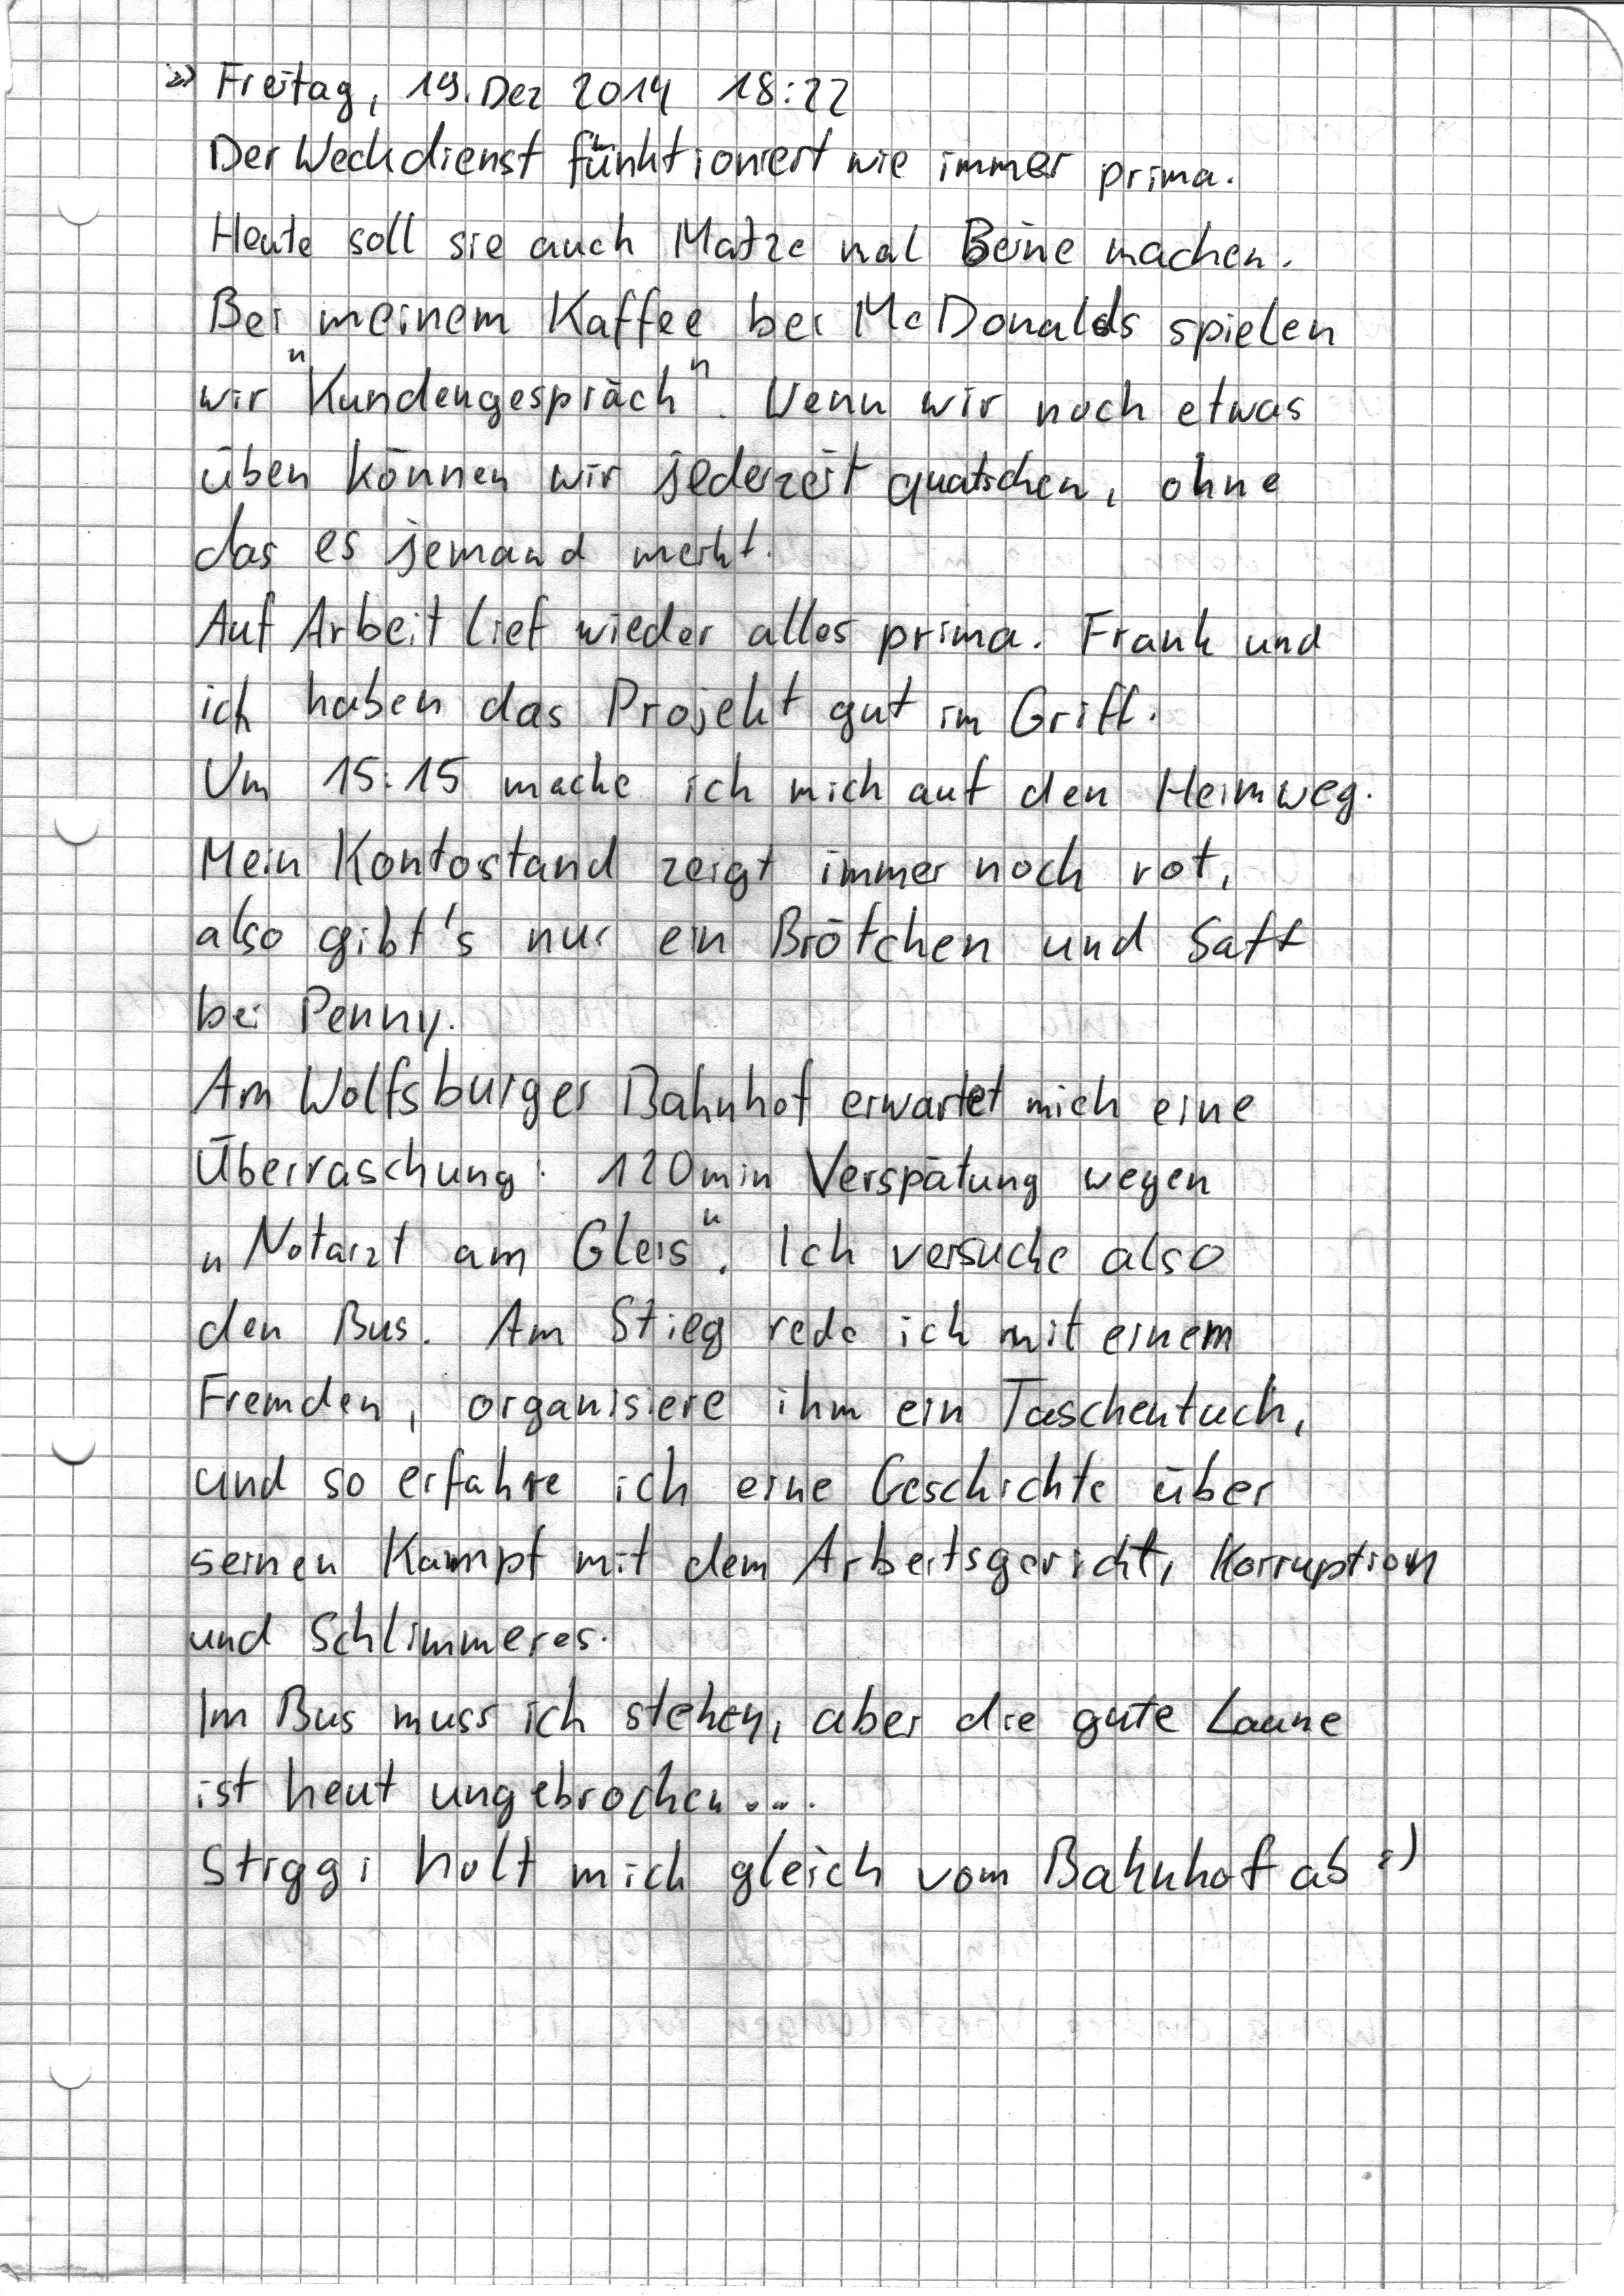 » Freitag, 19. Dez 2014 18:22
Der Weckdienst funktioniert wie immer prima.
Heute soll sie auch Matze mal Beine machen.
Bei meinem Kaffee bei McDonalds spielen
wir "Kundengespräch". Wenn wir noch etwas
üben können wir jederzeit quatschen, ohne
das es jemand merkt.
Auf Arbeit lief wieder alles prima. Frank und
ich haben das Projekt gut im Griff.
Um 15:15 mache ich mich auf den Heimweg.
Mein Kontostand zeigt immer noch rot,
also gibt's nur ein Brötchen und Saft
bei Penny.
Am Wolfsburger Bahnhof erwartet mich eine
Überraschung: 120min Verspätung wegen
„Notarzt am Gleis". Ich versuche also
den Bus. Am Stieg rede ich mit einem
Fremden, organisiere ihm ein Taschentuch,
und so erfahre ich eine Geschichte über
seinen Kampf mit dem Arbeitsgericht, Korruption
und Schlimmeres.
Im Bus muss ich stehen, aber die gute Laune
ist heut ungebrochen...
Stiggi holt mich gleich vom Bahnhof ab :)